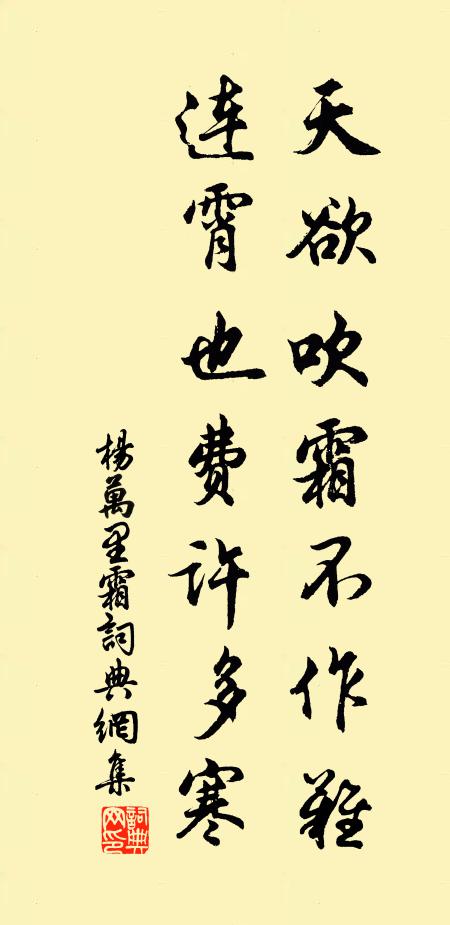 天欲吹霜不作難
連霄也費許多寒
楊萬里霜詞典網集
詞典網印